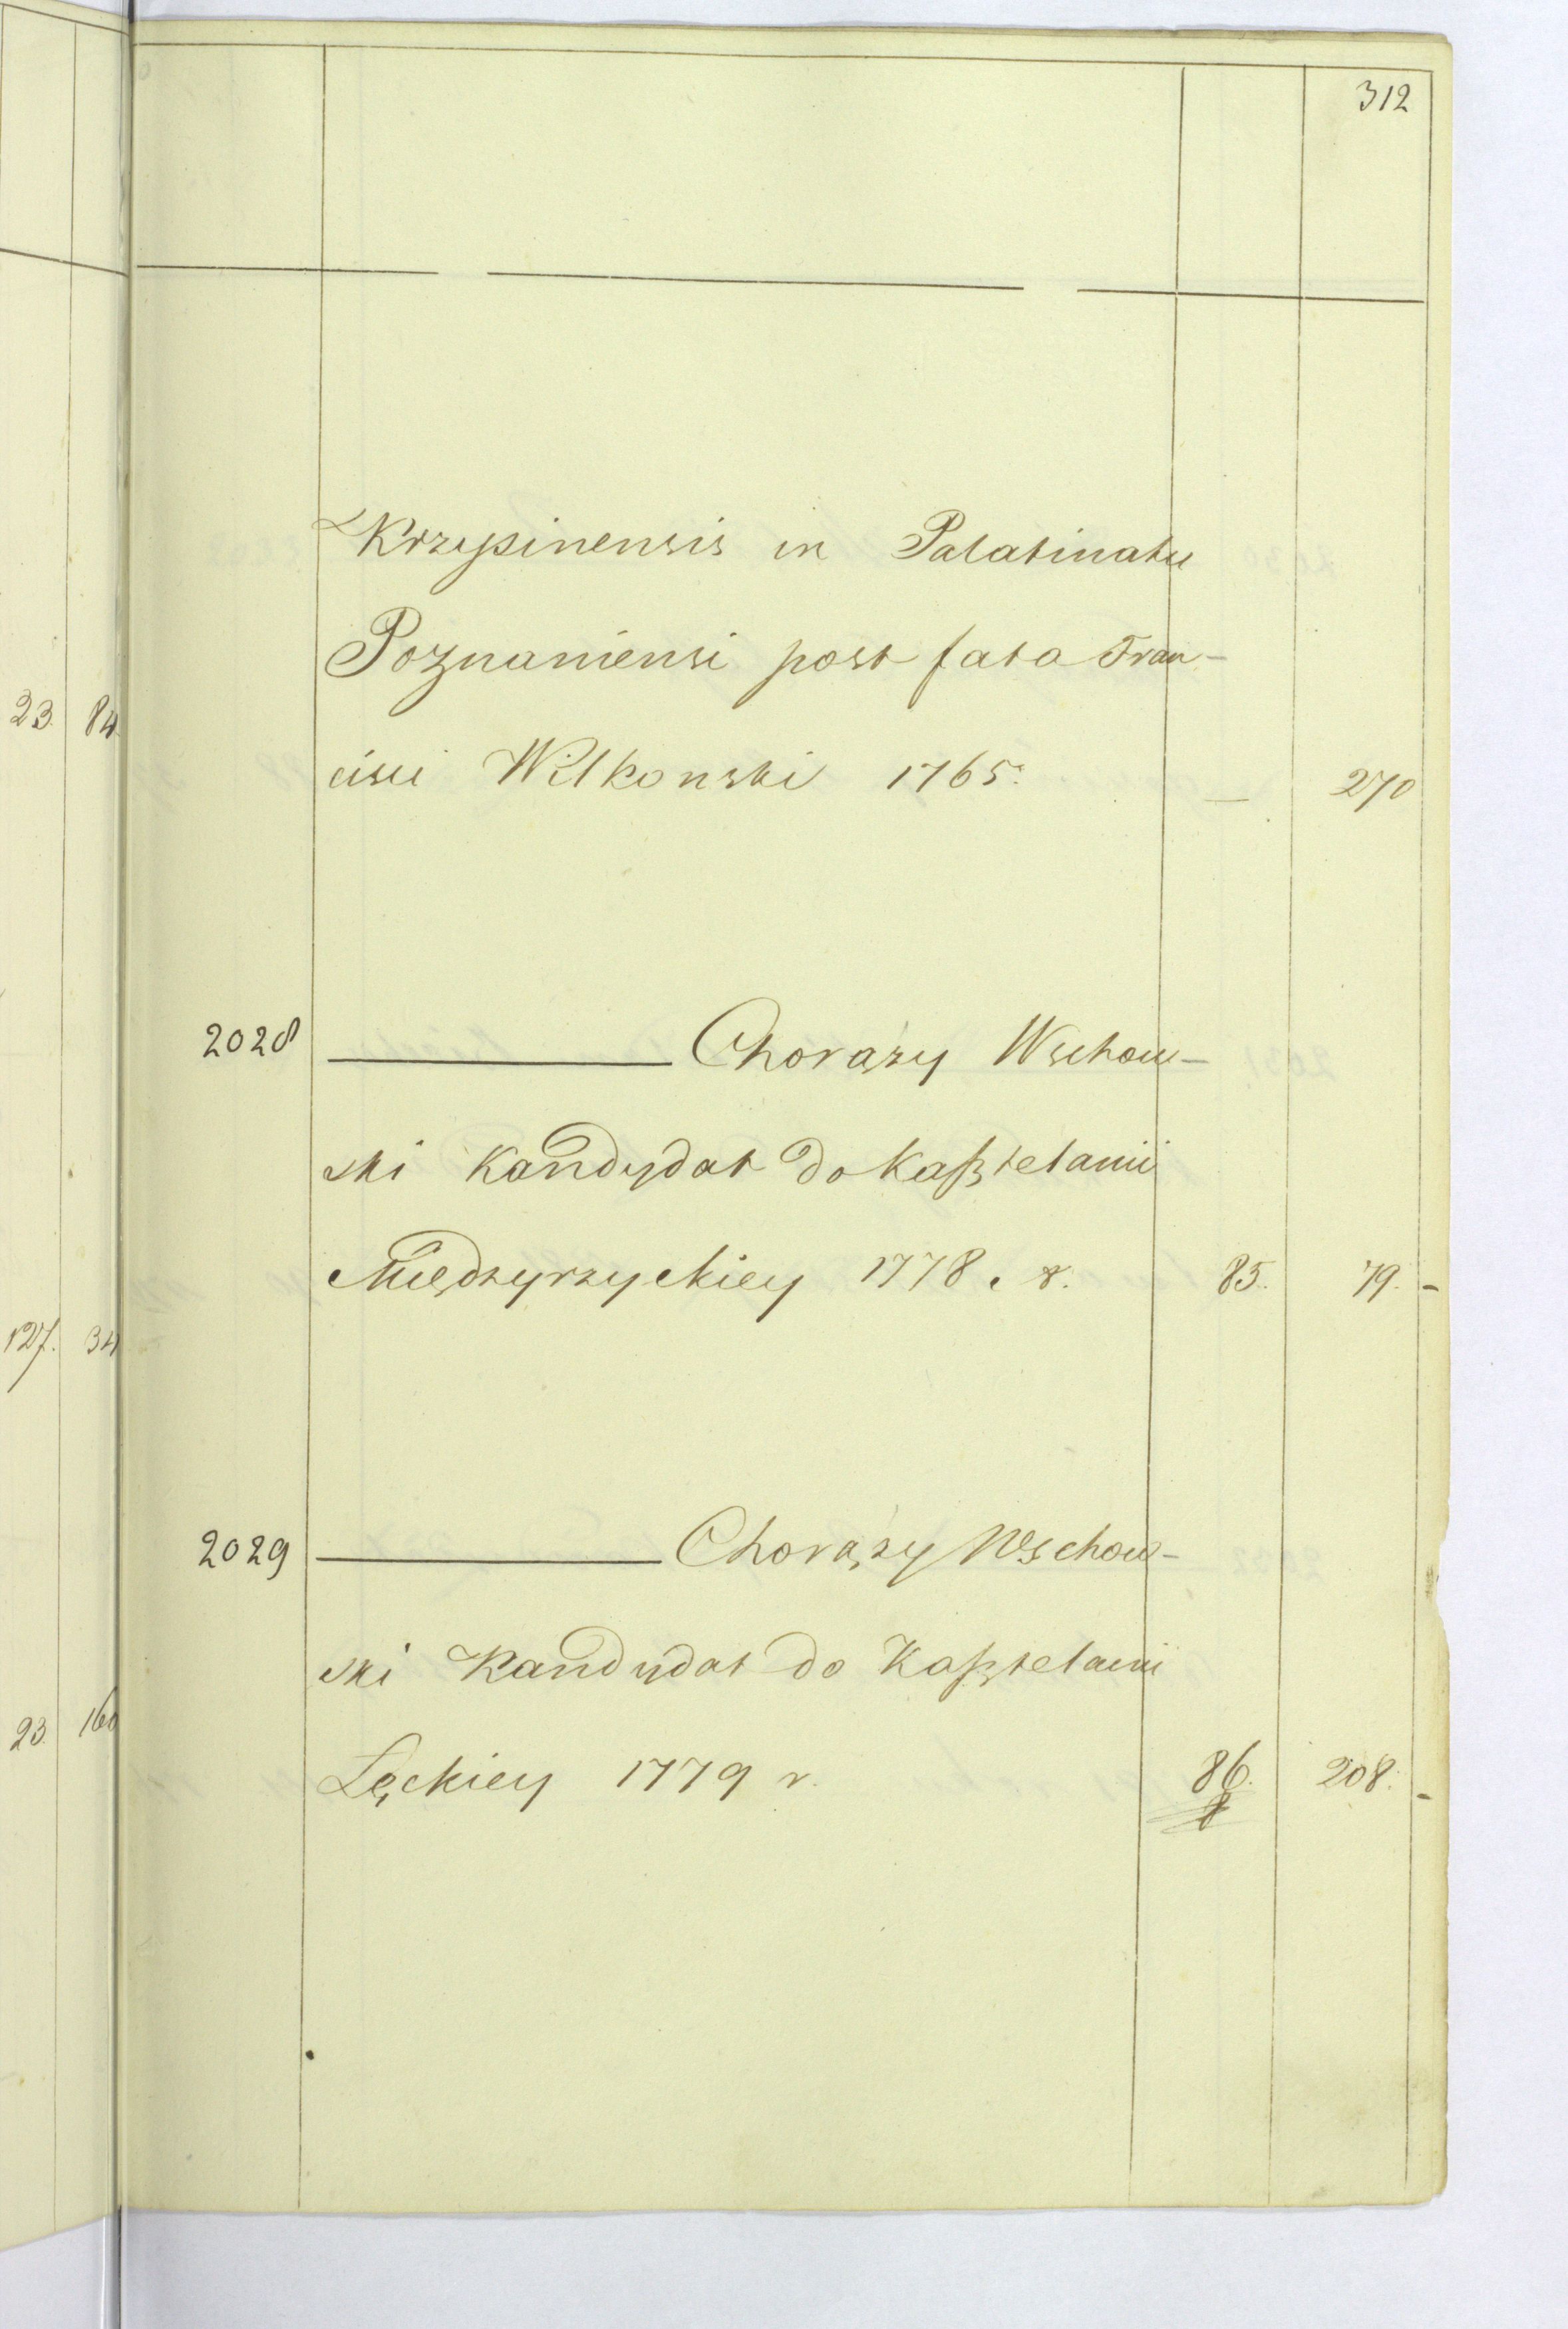 312
Krzypinensis in Palatinatu
Poznaniensi post fata Fran-
cisci Wilkonski 1765. — 270
2028 ——— Chorąży Wschow-
ski Kandydat do Kaßtelanii
Międzyrzyckiey 1778. r. 85. 79. -
2029 ——— Chorąży Wschow-
ski Kandydat do Kaßtelanii
Lęckiey 1779 r. 86. 208. -
23. 84
127. 34
23. 160